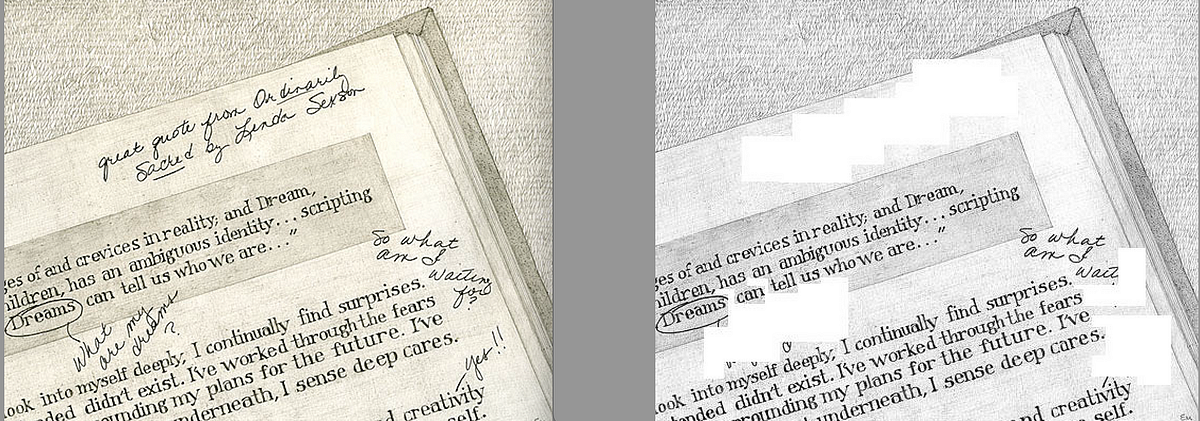 great quote from Ordinarily
Sacred by Linda Sexson
ges of and crevices in reality; and Dream,
hildren, has an ambiguous identity... scripting
Dreams can tell us who we are..."
So what
am I
waiting
for
?
What my
are my
dreams
?
look into myself deeply, I continually find surprises.
ended didn't exist. I've worked through the fears
rounding my plans for the future. I've
underneath, I sense deep cares.
yes!!
nd creativity
self.
ges of and crevices in reality; and Dream,
hildren, has an ambiguous identity... scripting
Dreams can tell us who we are..."
So what
am I
wait
look into myself deeply, I continually find surprises.
ended didn't exist. I've worked through the fears
rounding my plans for the future. I've
underneath, I sense deep cares.
nd creativity
self.